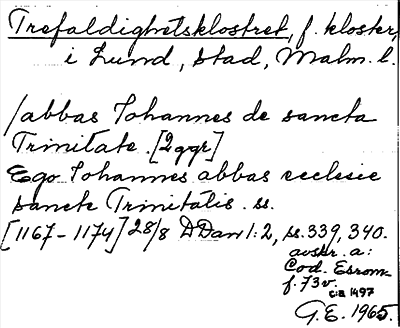 Trefaldighetsklostret, f. kloster,
i Lund, stad, Malm. l.
/abbas Johannes de sancta
Trinitate. [2 ggr]
Ego Johannes abbas ecclesie
sancte Trinitatis. ss.
[1167-1174] 28/8 DDan 1:2, ss. 339, 340.
avskr. a:
Cod. Esrom.
f. 73v.
ca 1497
G.E. 1965.